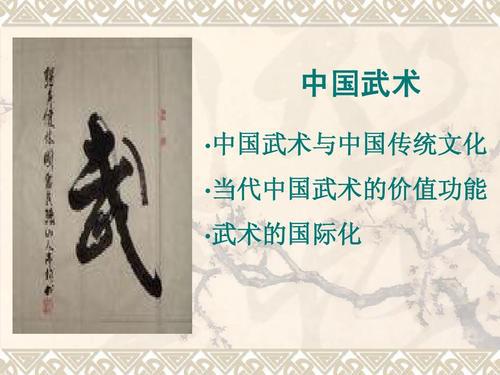 中国武术
•中国武术与中国传统文化
•当代中国武术的价值功能
•武术的国际化
武